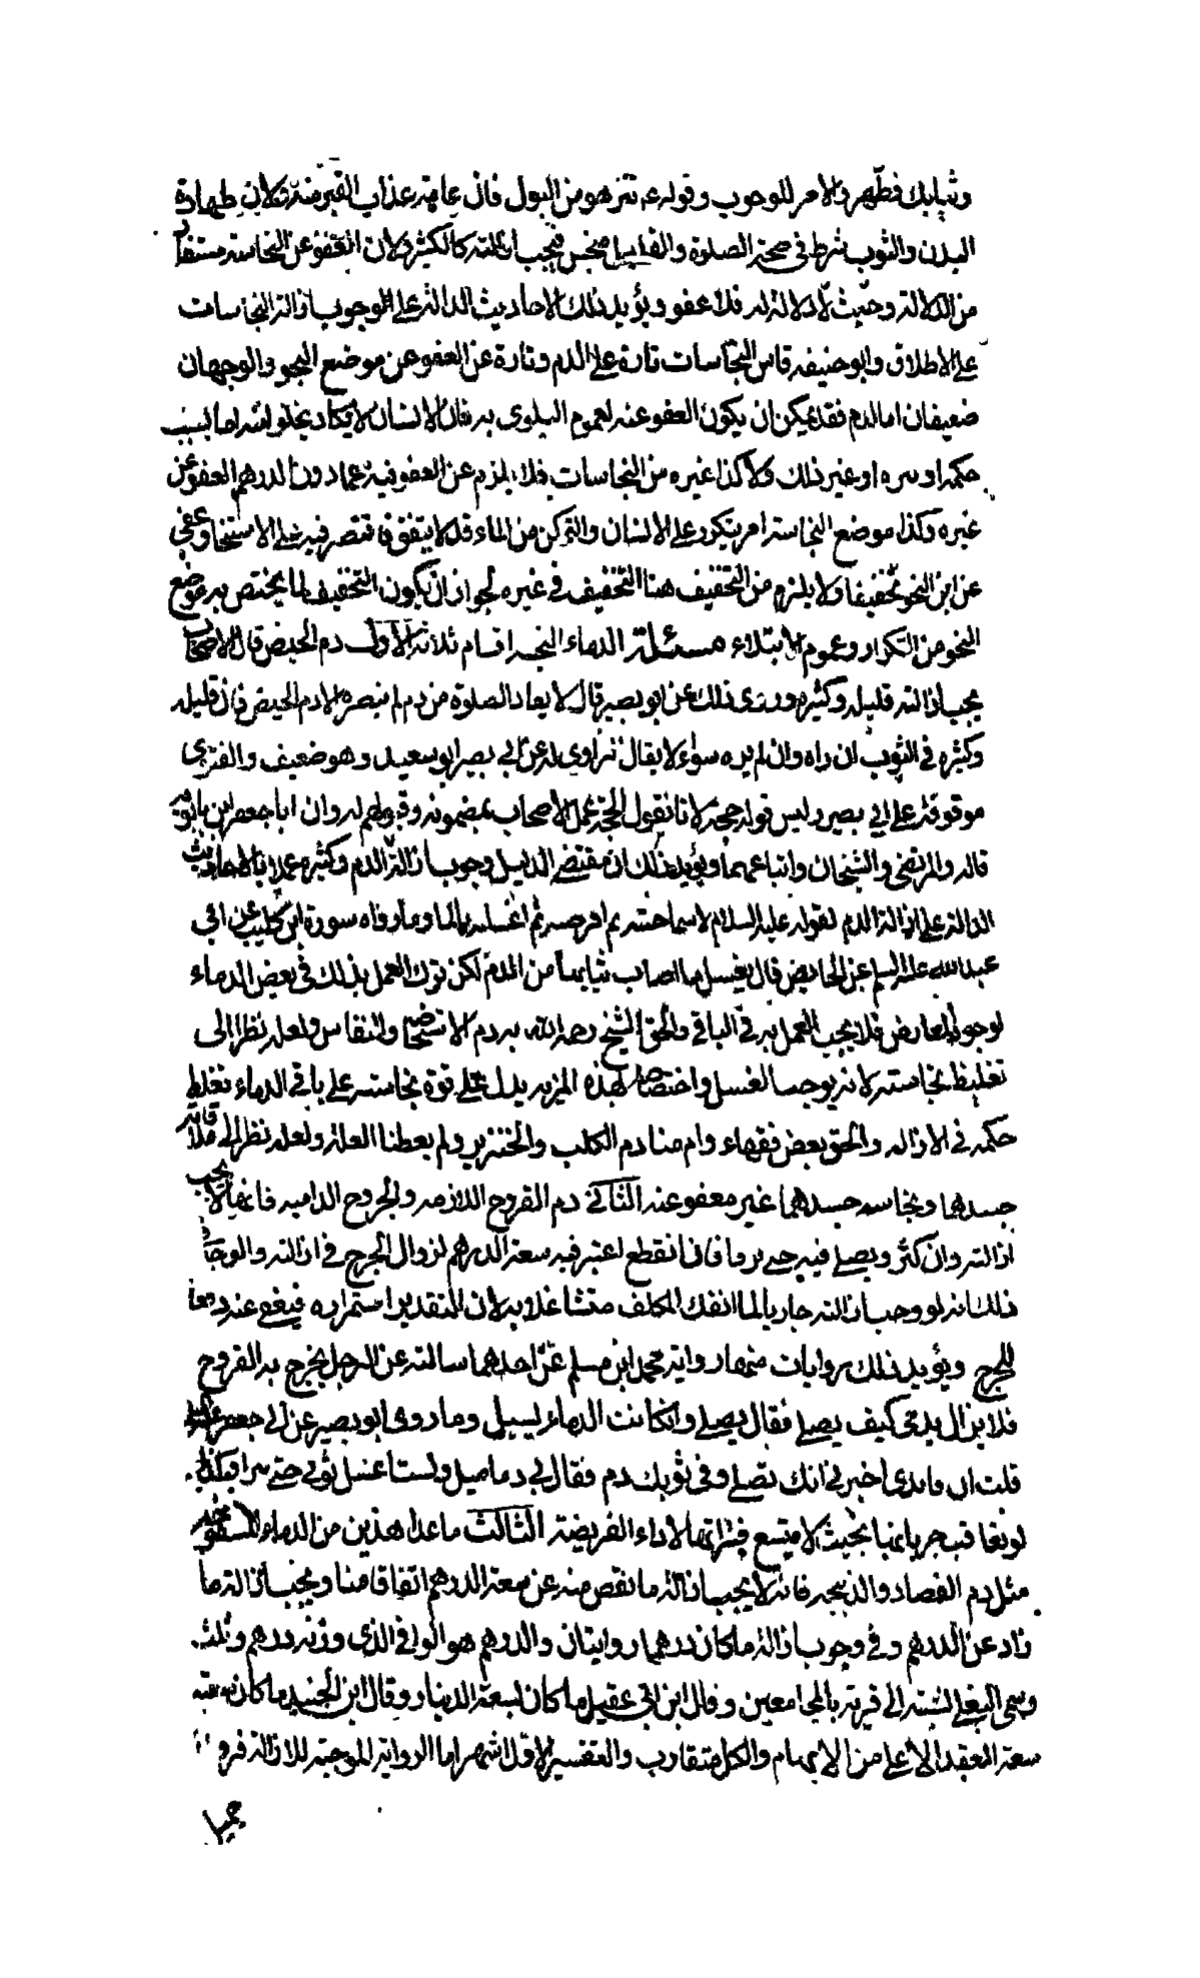 وثيابك فطهر والامر للوجوب وقوله عم تنزهو من البول فان عامة عذاب القبر منه ولان طهارة
البدن والثوب شرط في صحة الصلوة والقليل منجس فيجب ازالته كالكثير ولان العفو عن النجاسة مستفاد
من الدلالة وحيث لا دلالة له فلا عفو ويؤيد ذلك الاحاديث الدالة على الوجوب ازالة النجاسات
على الاطلاق وابو حنيفه قاس النجاسات تارة على الدم وتارة عن العفو عن موضع النجو والوجهان
ضعيفان اما الدم فقد يمكن ان يكون العفو عنه لعموم البلوى به فان الانسان لا يكاد يخلو منه اما بسبب
حكه او بثره او غير ذلك ولا كذا غيره من النجاسات فلا يلزم عن العفو فيه عما دون الدرهم العفو عن
غيره وكذا موضع النجاسة امر يتكرر على الانسان والتمكن من الماء قد لا يتفق فاقتصر فيه على الاستنجا وعفي
عن اثر النجو تخفيفا ولا يلزم من التخفيف هنا التخفيف في غيره لجواز ان يكون التخفيف لما يختص به موضع
النجو من التكرار وعموم الابتلاء مسئلة الدماء النجسه اقسام ثلاثة الاول دم الحيض قال الاصحاب
يجب ازالة قليله وكثيره وروى ذلك عن ابو بصير قال لا يعاد الصلوة من دم لم تبصره الا دم الحيض فان قليله
وكثيره في الثوب ان راه وان لم يره سواء لا يقال الراوي له عن ابي بصير ابو سعيد وهو ضعيف والفتوى
موقوفة على ابي بصير وليس قوله حجة لانا نقول الحجة عمل الاصحاب بمضمونه وقبولهم له وان ابا جعفر ابن بابويه
قاله والمرتضى والشيخان واتباعهما ويؤيد ذلك ان مقتضى الدليل وجوب ازالة الدم وكثيره عملا بالاحاديث
الدالة على ازالة الدم لقوله عليه السلام لاسما حتيه ثم اقرصيه ثم اغسليه بالماء وما رواه سورة ابن كليب عن ابي
عبد الله عليه السلم عن الحايض قال يغسل ما اصاب ثيابها من الدم لكن ترك العمل بذلك في بعض الدماء
لوجود المعارض فلا يجب العمل به في الباقي والحق الشيخ رحمه الله به دم الاستحاضة والنفاس ولعله نظرا الى
تغليظ نجاسته لانه يوجب الغسل واختصاصه لهذه المزيه يدل على قوة نجاسته على باقي الدماء تغلظ
حكمه في الازاله والحق بعض فقهاء وام منا دم الكلب والخنزير ولم يعطنا العلة ولعله نظر الى ملاقاته
جسدهما ونجاسة جسدهما غير معفو عنه الثاني دم القروح اللازمه والجروح الداميه فانه لا يجب
ازالته وان كثر ويصلي فيه حتى يرقا فاذا انقطع اعتبر فيه سعة الدرهم لزوال الحرج في ازالته والوجه في
ذلك انه لو وجب ازالته جاريا لما انفك المكلف متشاغلا به لان التقدير استمراره فيعفى عنه دفعا
للحرج ويؤيد ذلك روايات منها رواية محمد ابن مسلم عن احدهما سالته عن الرجل يخرج به القروح
فلا يزال يدمى كيف يصلي فقال يصلي وان كانت الدماء يسيل وما روى ابو بصير عن ابي جعفر عليه السلم
قلت ان قايدي اخبرني انك تصلي وفي ثوبك دم فقال بي دماميل ولست اغسل ثوبي حتى تبرا فكذا
لو تعاقب جريانها بحيث لا يتسع فتراتها لاداء الفريضة الثالث ما عدا هذين من الدماء المسفوحه
مثل دم الفصاد والذبيحه فانه لا يجب ازالة ما نقص منه عن سعة الدرهم اتفاقا منا ويجب ازالة ما
زاد عن الدرهم وفي وجوب ازالة ما كان درهما روايتان والدرهم هو الوافي الذي وزنه درهم وثلث
وسمى البغلي لنسبته الى قرية بالجامعين وقال ابن ابي عقيل ما كان لسعة الدينار وقال ابن الجنيد ما كان سعته
سعة العقد الاعلى من الابهام والكل متقارب والتفسير الاول اشهر اما الرواية الموجبة للازالة فروى
جميل